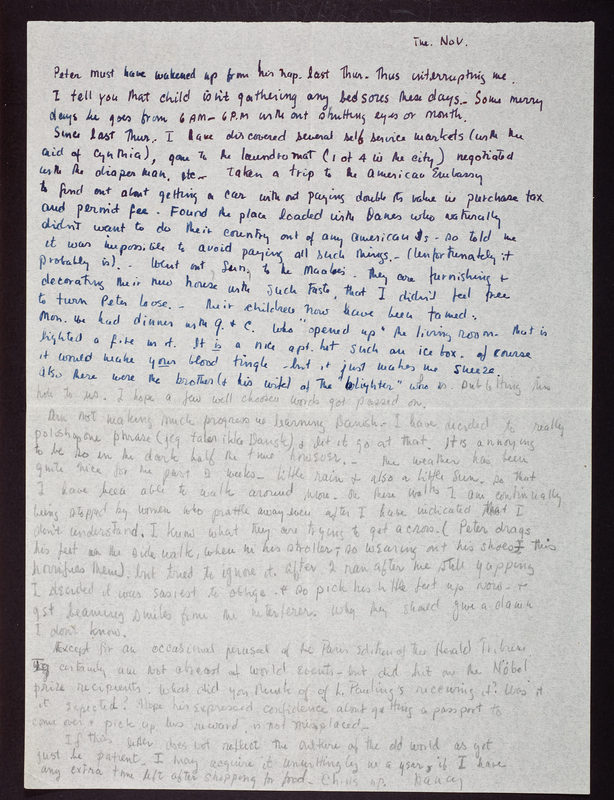 Tue. Nov.
Peter must have wakened up from his nap last Thur. thus interrupting me.
I tell you that child isn't gathering any bed sores these days. Some merry
days he goes from 6 AM - 6 PM without shutting eyes or mouth.
Since last Thur. I have discovered several self service markets (with the
aid of Cynthia), gone to the laundromat (1 of 4 in the city) negotiated
with the diaper man, etc - Taken a trip to the American Embassy
to find out about getting a car without paying double its value in purchase tax
and permit fee. Found the place loaded with Danes who naturally
didn't want to do their country out of any American $s - so told me
it was impossible to avoid paying all such things. - (Unfortunately it
probably is). - Went out, Sun, to the Maaløes - They are furnishing +
decorating their new house with such taste, that I didn't feel free
to turn Peter loose. - Their children now have been tamed.
Mon. we had dinner with G. + C. who "opened up" the living room - that is
lighted a fire in it. It is a nice apt. but such an ice box. Of course
it would make your blood tingle - but it just makes me sneeze.
Also there were the brother (+ his wife) of the "blighter" who is subletting this
hole to us. I hope a few well chosen words got passed on.
Am not making much progress in learning Danish - I have decided to really
polish one phrase (jeg taler ikke Dansk) + let it go at that. It is annoying
to be so in the dark half the time however. - The weather has been
quite nice for the past 2 weeks - little rain + also a little sun. So that
I have been able to walk around more. On these walks I am continually
being stopped by women who prattle away even after I have indicated that I
don't understand. I know what they are trying to get across. (Peter drags
his feet on the side walk, when in his stroller, so wearing out his shoes + this
horrifies them), but tried to ignore it. After 2 ran after me still yapping
I decided it was easiest to oblige - + so pick his little feet up now - +
get beaming smiles from the interferer. Why they should give a damn
I don't know.
Except for an occasional perusal of the Paris edition of the Herald Tribune
I certainly am not abreast of world events - but did hit on the Nobel
prize recipients. What did you think of of L. Pauling's receiving it? Was it
it expected? Hope his expressed confidence about getting a passport to
come over + pick up his reward is not misplaced -
If this letter does not reflect the culture of the old world as yet
just be patient. I may acquire it unwittingly in a year, if I have
any extra time left after shopping for food. Chins up.